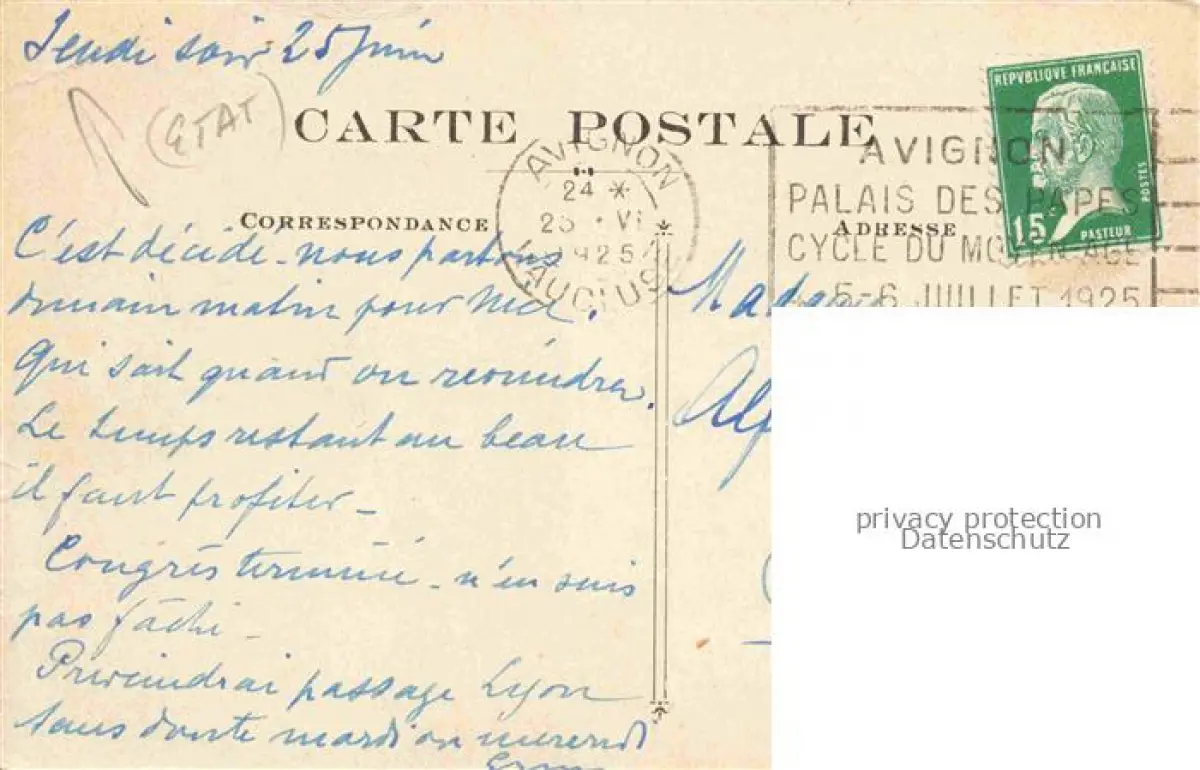 Jeudi soir 25 juin
(ETAT)
CARTE POSTALE
REPVBLIQUE FRANÇAISE
15c
POSTES
PASTEUR
AVIGNON
24 *
25 · VI
1925
VAUCLUSE
AVIGNON
PALAIS DES PAPES
CYCLE DU MOYEN AGE
5-6 JUILLET 1925
CORRESPONDANCE
ADRESSE
C'est décidé - nous partons
demain matin pour Nice.
Qui sait quand on reviendra.
Le temps restant au beau
il faut profiter -
Congrès terminé - n'en suis
pas fâché -
Préviendrai passage Lyon
sans doute mardi ou mercredi
Madame
Alf
privacy protection
Datenschutz